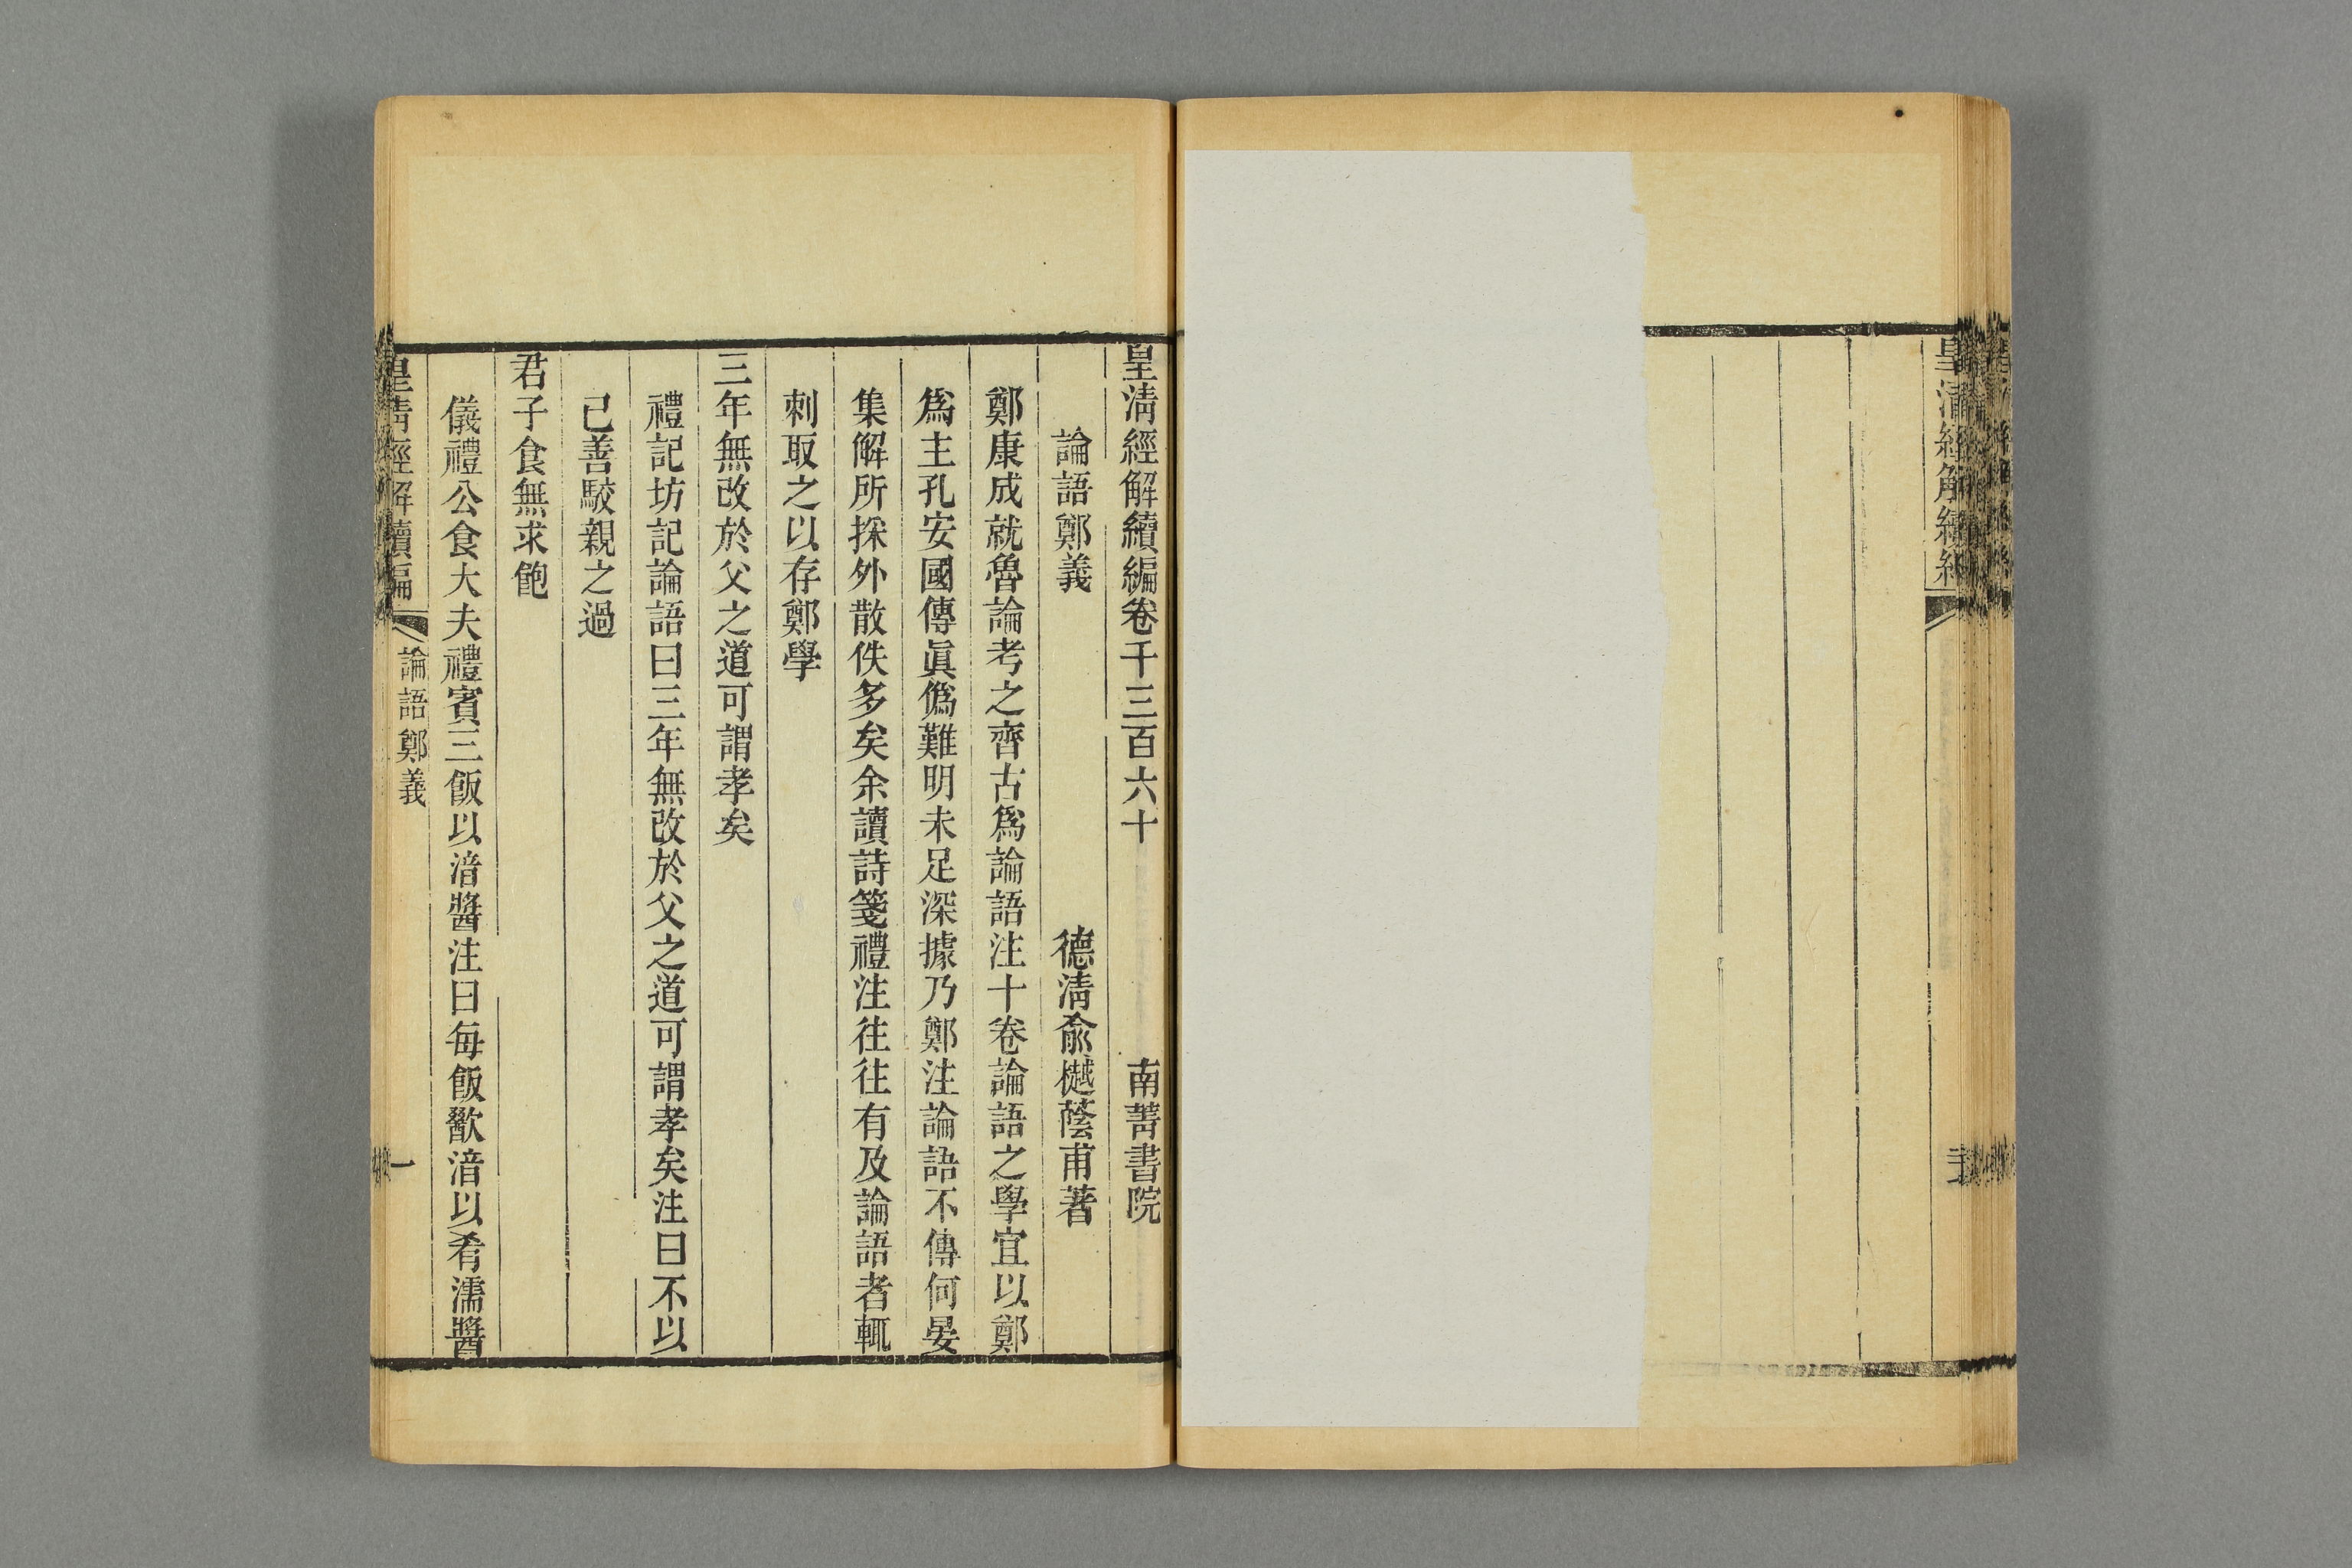 皇清經解續
皇清經解續編卷千三百六十
南菁書院
論語鄭義
德清俞樾蔭甫著
鄭康成就魯論考之齊古爲論語注十卷論語之學宜以鄭
爲主孔安國傳眞僞難明未足深據乃鄭注論語不傳何晏
集解所採外散佚多矣余讀詩箋禮注往往有及論語者輒
刺取之以存鄭學
三年無改於父之道可謂孝矣
禮記坊記論語曰三年無改於父之道可謂孝矣注曰不以
己善駮親之過
君子食無求飽
儀禮公食大夫禮賓三飯以湆醬注曰每飯歠湆以肴濡醬
皇清經解續編
論語鄭義
一